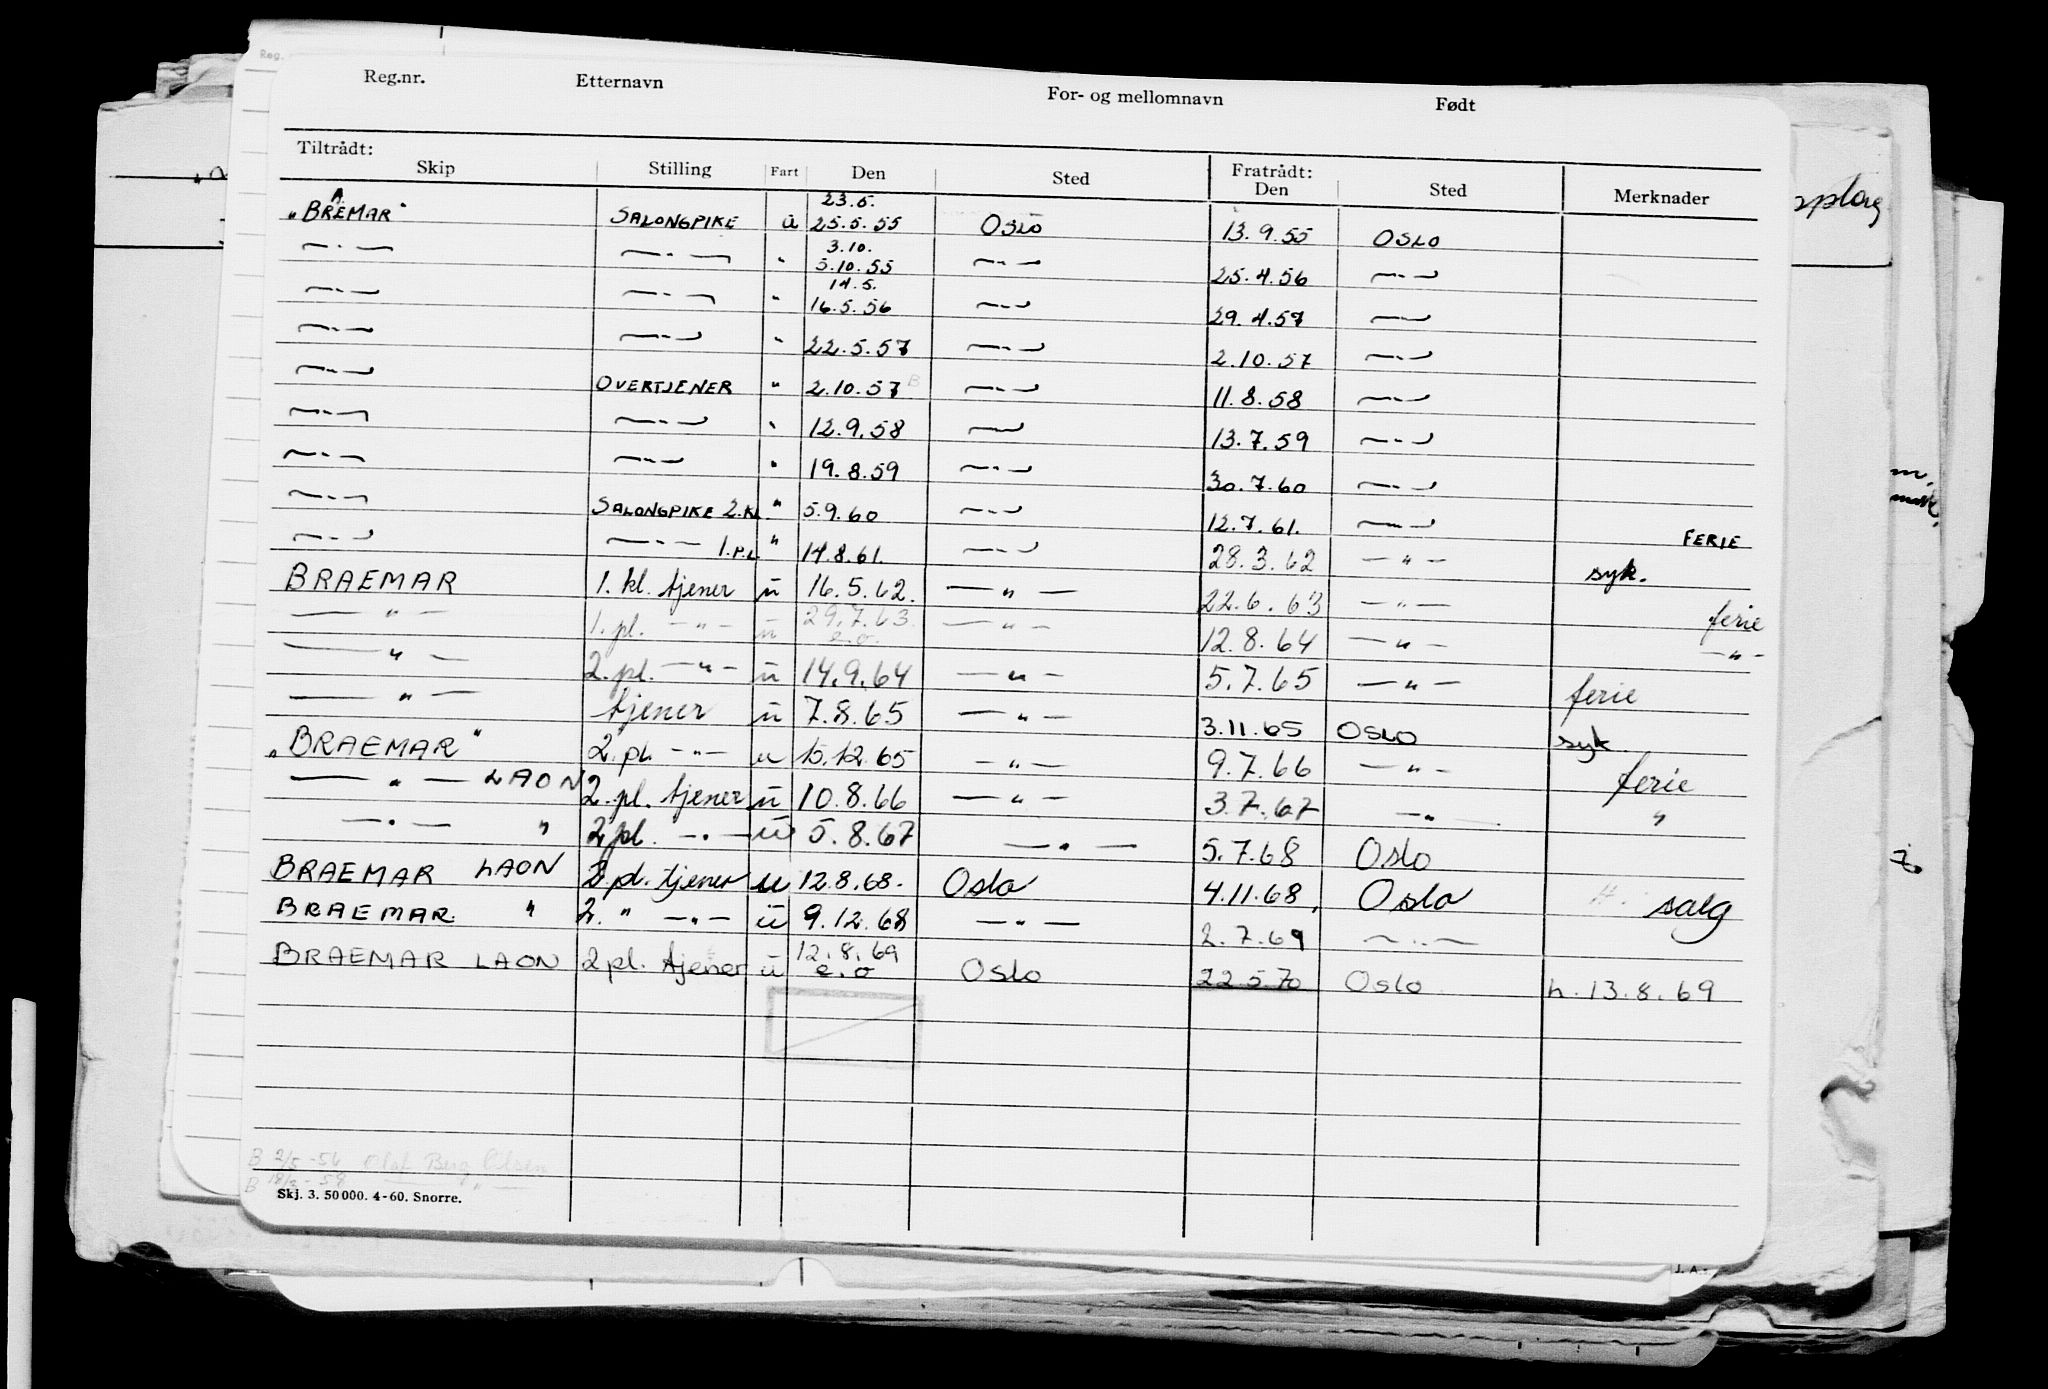 Reg.nr. Etternavn For- og mellomnavn Født
Tiltrådt: Fratrådt:
Skip Stilling Fart Den Sted Den Sted Merknader
23.5.
"BRAEMAR" SALONGPIKE u 25.5.55 OSLO 13.9.55 OSLO
3.10.
—"— —"— " 5.10.55 —"— 25.4.56 —"—
14.5.
—"— —"— " 16.5.56 —"— 29.4.57 —"—
—"— —"— " 22.5.57 —"— 2.10.57 —"—
—"— OVERTJENER " 2.10.57 B —"— 11.8.58 —"—
—"— —"— " 12.9.58 —"— 13.7.59 —"—
—"— —"— " 19.8.59 —"— 30.7.60 —"—
—"— SALONGPIKE 2.KL " 5.9.60 —"— 12.7.61. —"— FERIE
—"— —"— 1.P.L " 14.8.61. —"— 28.3.62 —"— syk.
BRAEMAR 1. kl. tjener u 16.5.62. —"— 22.6.63 —"— ferie
—"— 1. pl. —"— u 29.7.63. e.o. —"— 12.8.64 —"— —"—
—"— 2. pl. —"— u 14.9.64 —"— 5.7.65 —"— ferie
—"— tjener u 7.8.65 —"— 3.11.65 OSLO syk.
"BRAEMAR" 2. pl. —"— u 15.12.65 —"— 9.7.66 —"— ferie
—"— LAON 2. pl. tjener u 10.8.66 —"— 3.7.67 —"— "
—"— " 2 pl. —"— u 5.8.67 —"— 5.7.68 Oslo
BRAEMAR LAON 2 pl. tjener u 12.8.68. Oslo 4.11.68. Oslo salg
BRAEMAR " 2. " —"— u 9.12.68 —"— 2.7.69 —"—
BRAEMAR LAON 2 pl. tjener u 12.8.69 e.o Oslo 22.5.70 Oslo h. 13.8.69
B 2/5 -56 Olaf Berg Olsen
B 18/3 -58 —"—
Skj. 3. 50 000. 4-60. Snorre.
J. A.